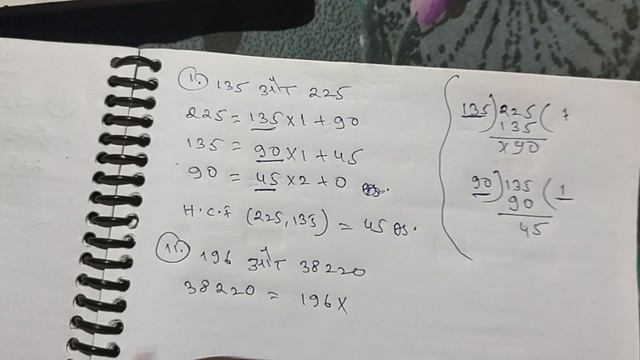 1. 135 और 225
225 = 135 × 1 + 90
135 = 90 × 1 + 45
90 = 45 × 2 + 0
H.C.F (225, 135) = 45
11. 196 और 38220
38220 = 196 ×
135)225(1
135
×90
90)135(1
90
45